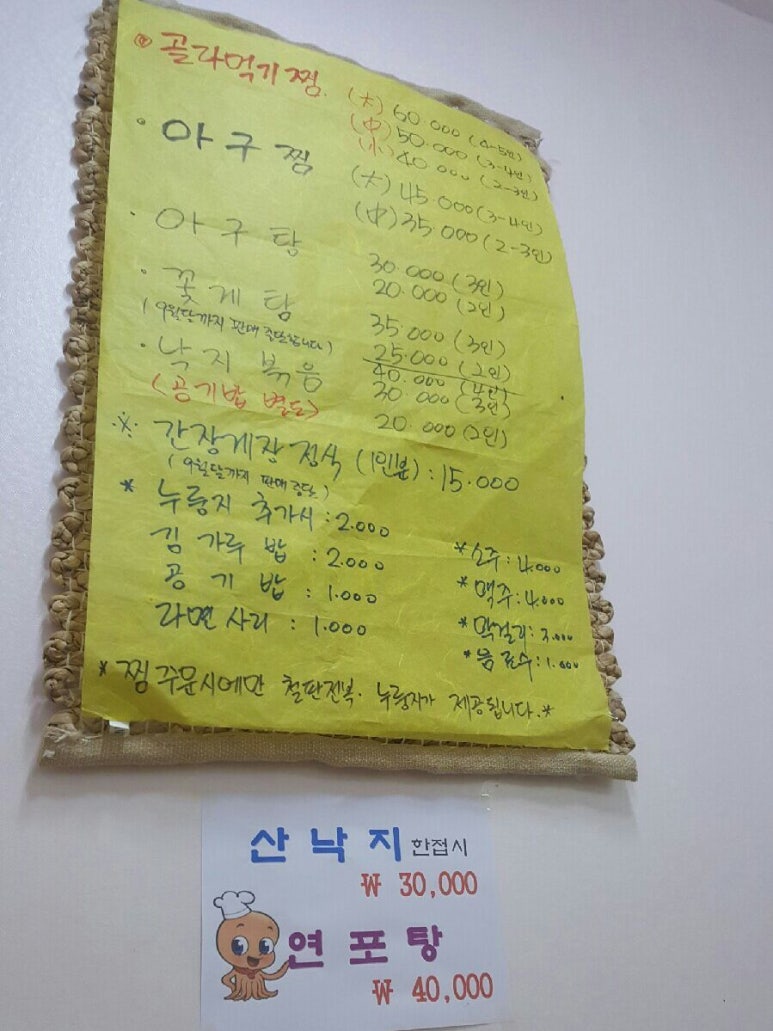 ◎ 골라먹기찜. (大) 60.000 (4-5인)
(中) 50.000 (3-4인)
(小) 40.000 (2-3인)
· 아구찜 (大) 45.000 (3-4인)
(中) 35.000 (2-3인)
· 아구탕 30.000 (3인)
20.000 (2인)
· 꽃게탕 35.000 (3인)
(9월달까지 판매 중단합니다) 25.000 (2인)
· 낙지볶음 40.000 (4인)
(공기밥 별도) 30.000 (3인)
20.000 (2인)
※ 간장게장 정식 (1인분) : 15.000
(9월달까지 판매 중단)
* 누룽지 추가시 : 2.000
김가루밥 : 2.000
공기밥 : 1.000
라면사리 : 1.000
* 소주 : 4.000
* 맥주 : 4.000
* 막걸리 : 3.000
* 음료수 : 1.000
* 찜 주문시에만 철판전복. 누룽지가 제공됩니다. *
산낙지 한접시
₩ 30,000
연포탕
₩ 40,000